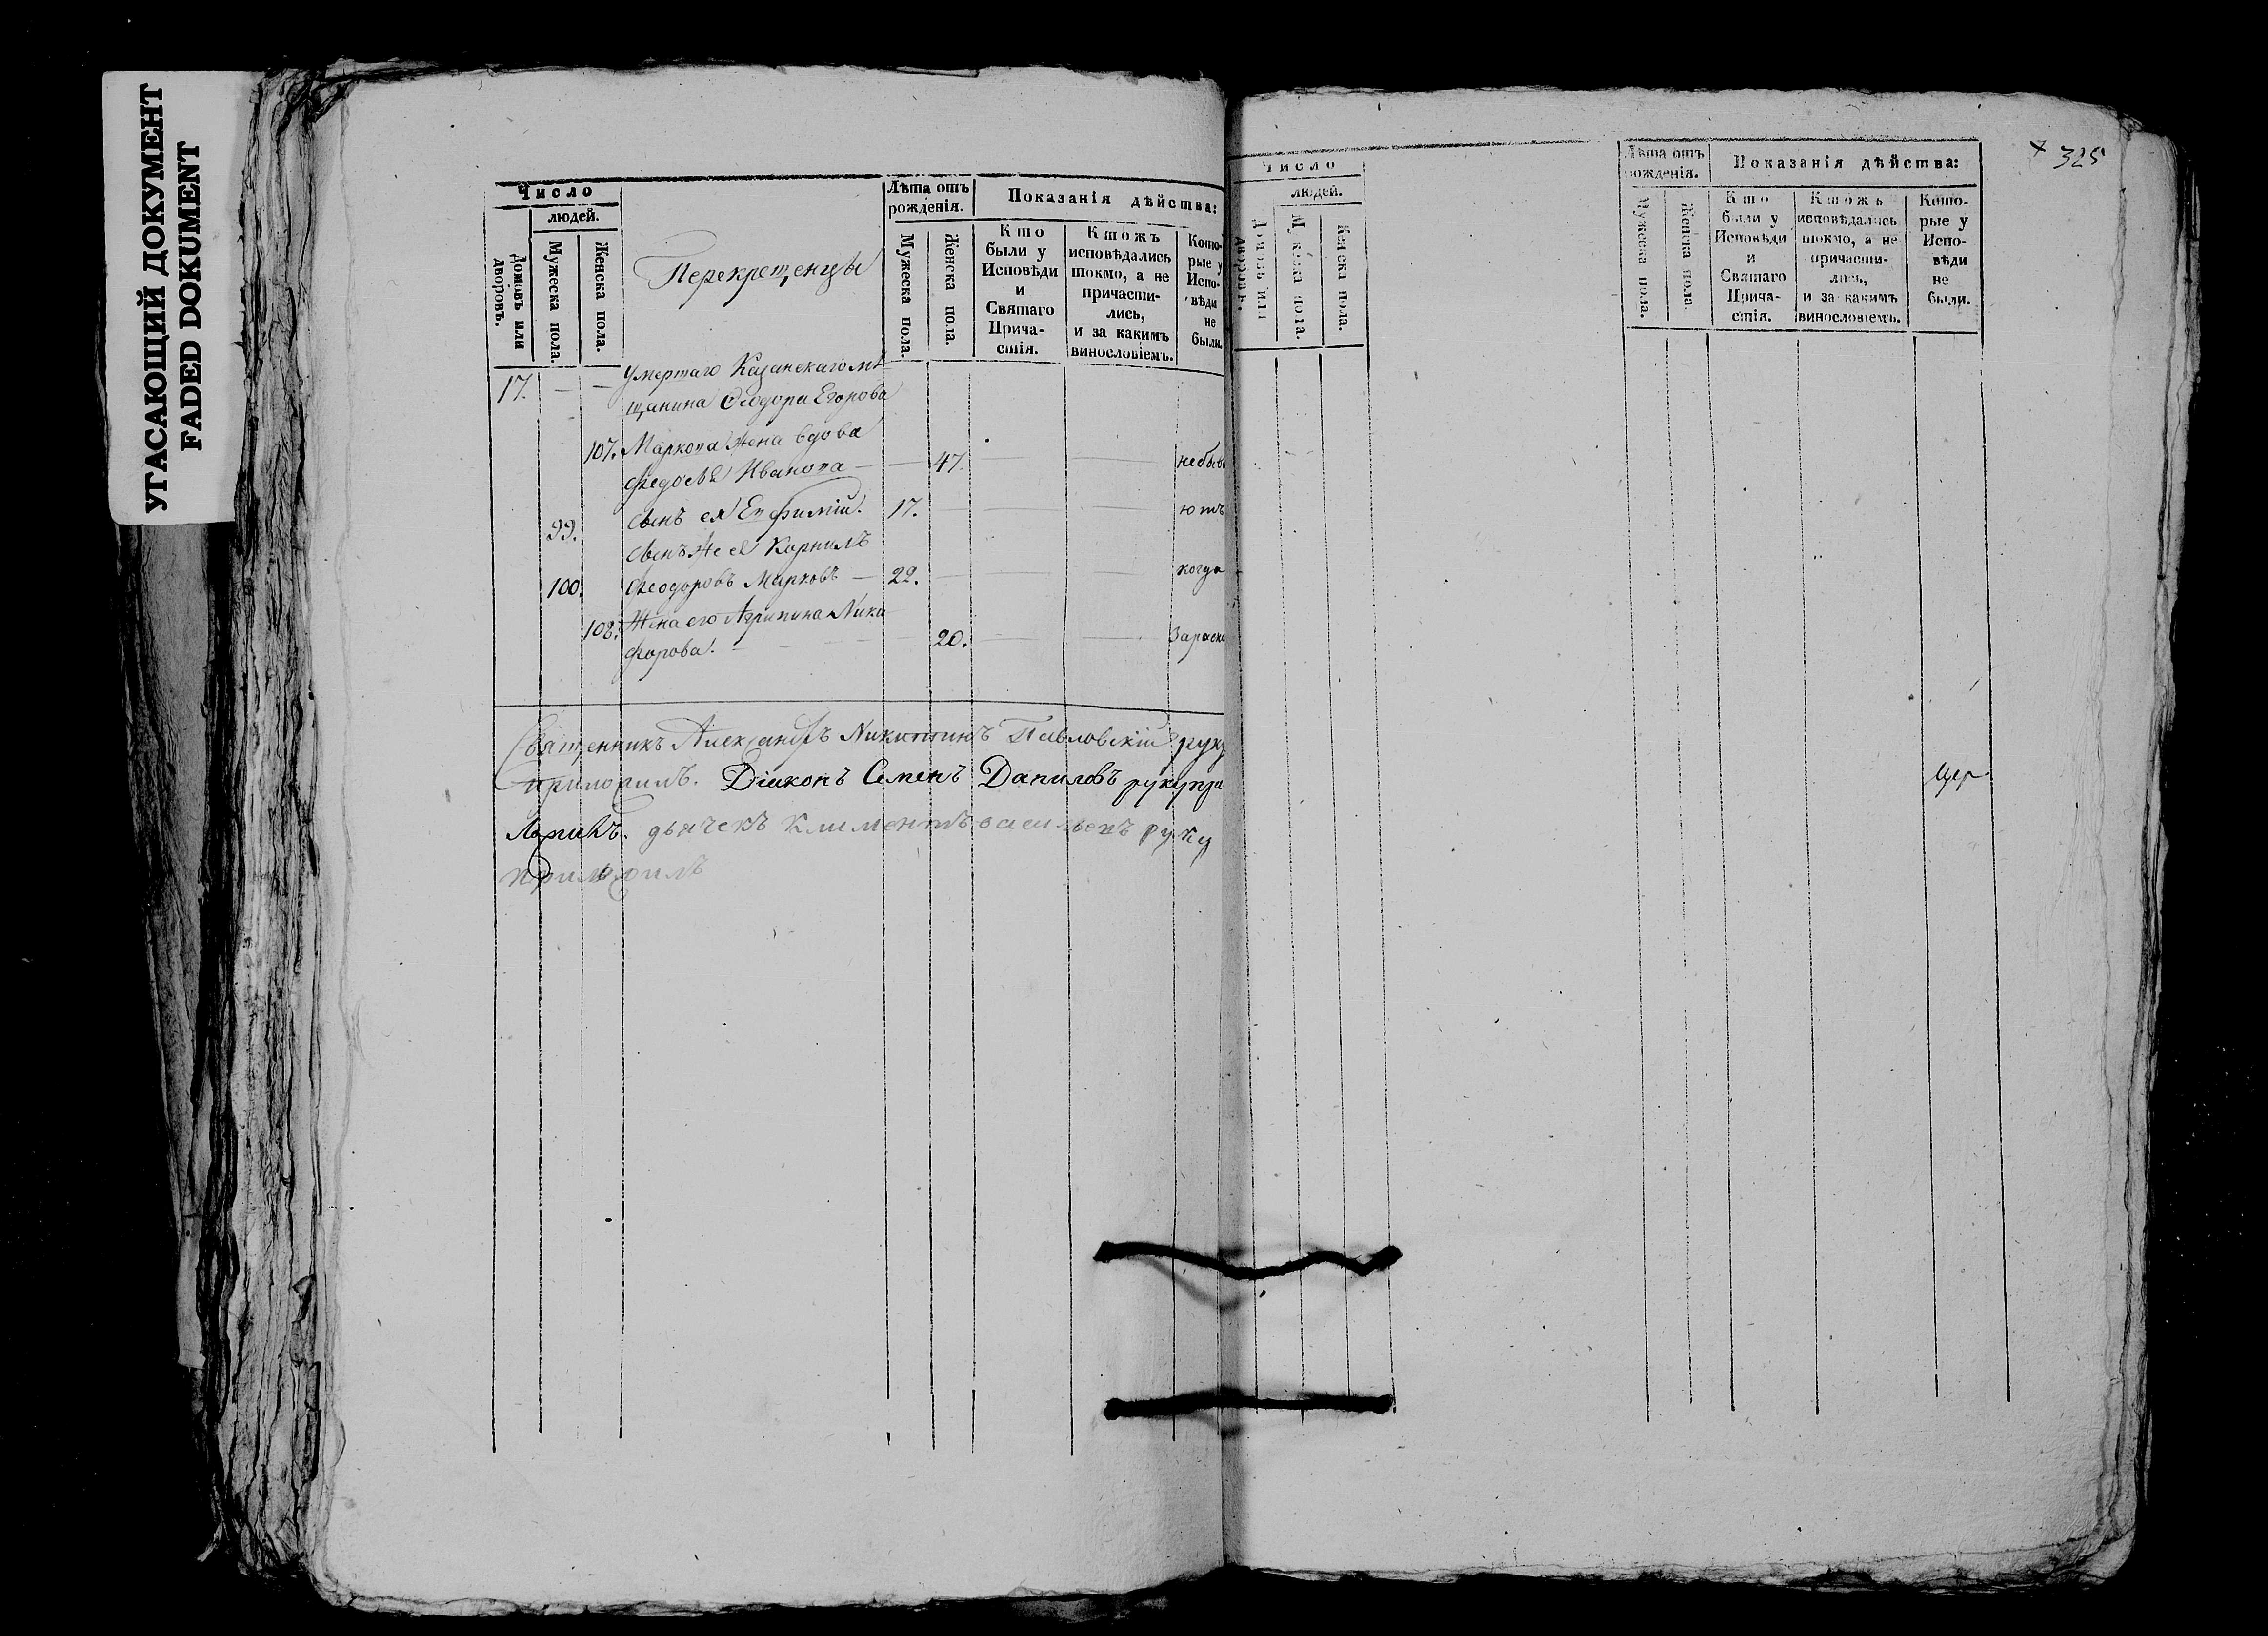 УГАСАЮЩИЙ ДОКУМЕНТ
FADED DOKUMENT
Число
людей.
Домовъ или дворовъ.
Мужеска пола.
Женска пола.
Перекрещенцы
Лѣта отъ рожденія.
Мужеска пола.
Женска пола.
Показанія дѣйства:
Кто были у Исповѣди и Святаго Прича-стія.
Ктожъ исповѣдались токмо, а не причасти-лись, и за какимъ винословіемъ.
Кото-рые у Испо-вѣди не были.
17. — — Умертаго Казанскаго мѣ
щанина Феодора Егорова
107. Маркова жена вдова
Федосья Иванова — — 47. — — не быва
99. Сынъ ея Епфимій. 17. — — ютъ
Сынъ же ея Корнилъ
100. Феодоровъ Марковъ — 22. — — когда
108. Жена его Агрипина Ника
форова. — — 20. — — За раско
Священникъ Александръ Никитинъ Павловскій руку
приложилъ. Діаконъ Семенъ Даниловъ руку при
ложилъ. дьячекъ Климентъ васильевъ руку
приложилъ
Число
людей.
Домовъ или дворовъ.
Мужеска пола.
Женска пола.
Лѣта отъ рожденія.
Мужеска пола.
Женска пола.
Показанія дѣйства:
Кто были у Исповѣди и Святаго Прича-стія.
Ктожъ исповѣдались токмо, а не причасти-лись, и за какимъ винословіемъ.
Кото-рые у Испо-вѣди не были.
325
Цер-